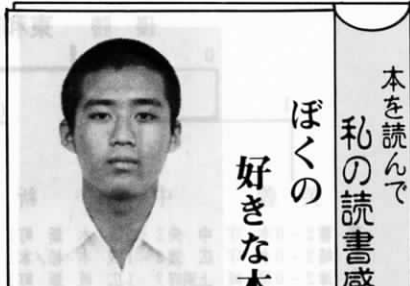 本を読んで
私の読書感
ぼくの
好きな本